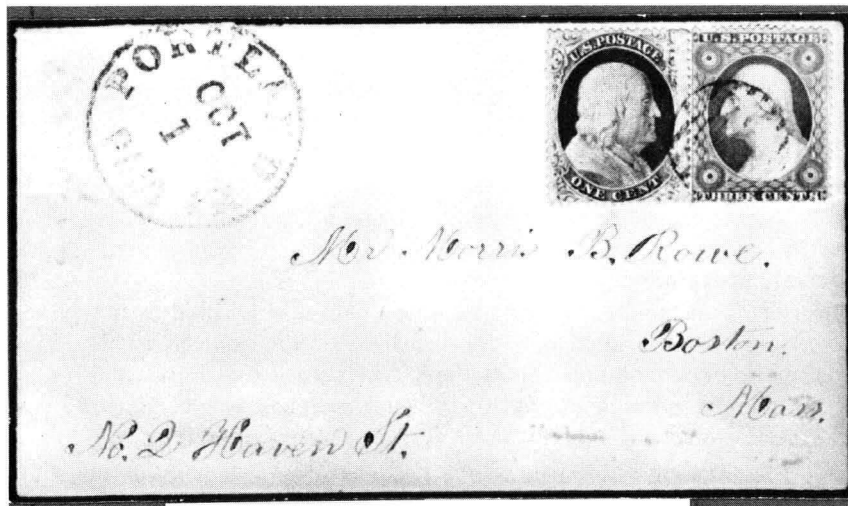 PORTLAND
OCT
1
U.S. POSTAGE
ONE CENT
U.S. POSTAGE
THREE CENTS
Mr Morris B. Rowe.
Boston.
Mass.
No. 2 Haven St.